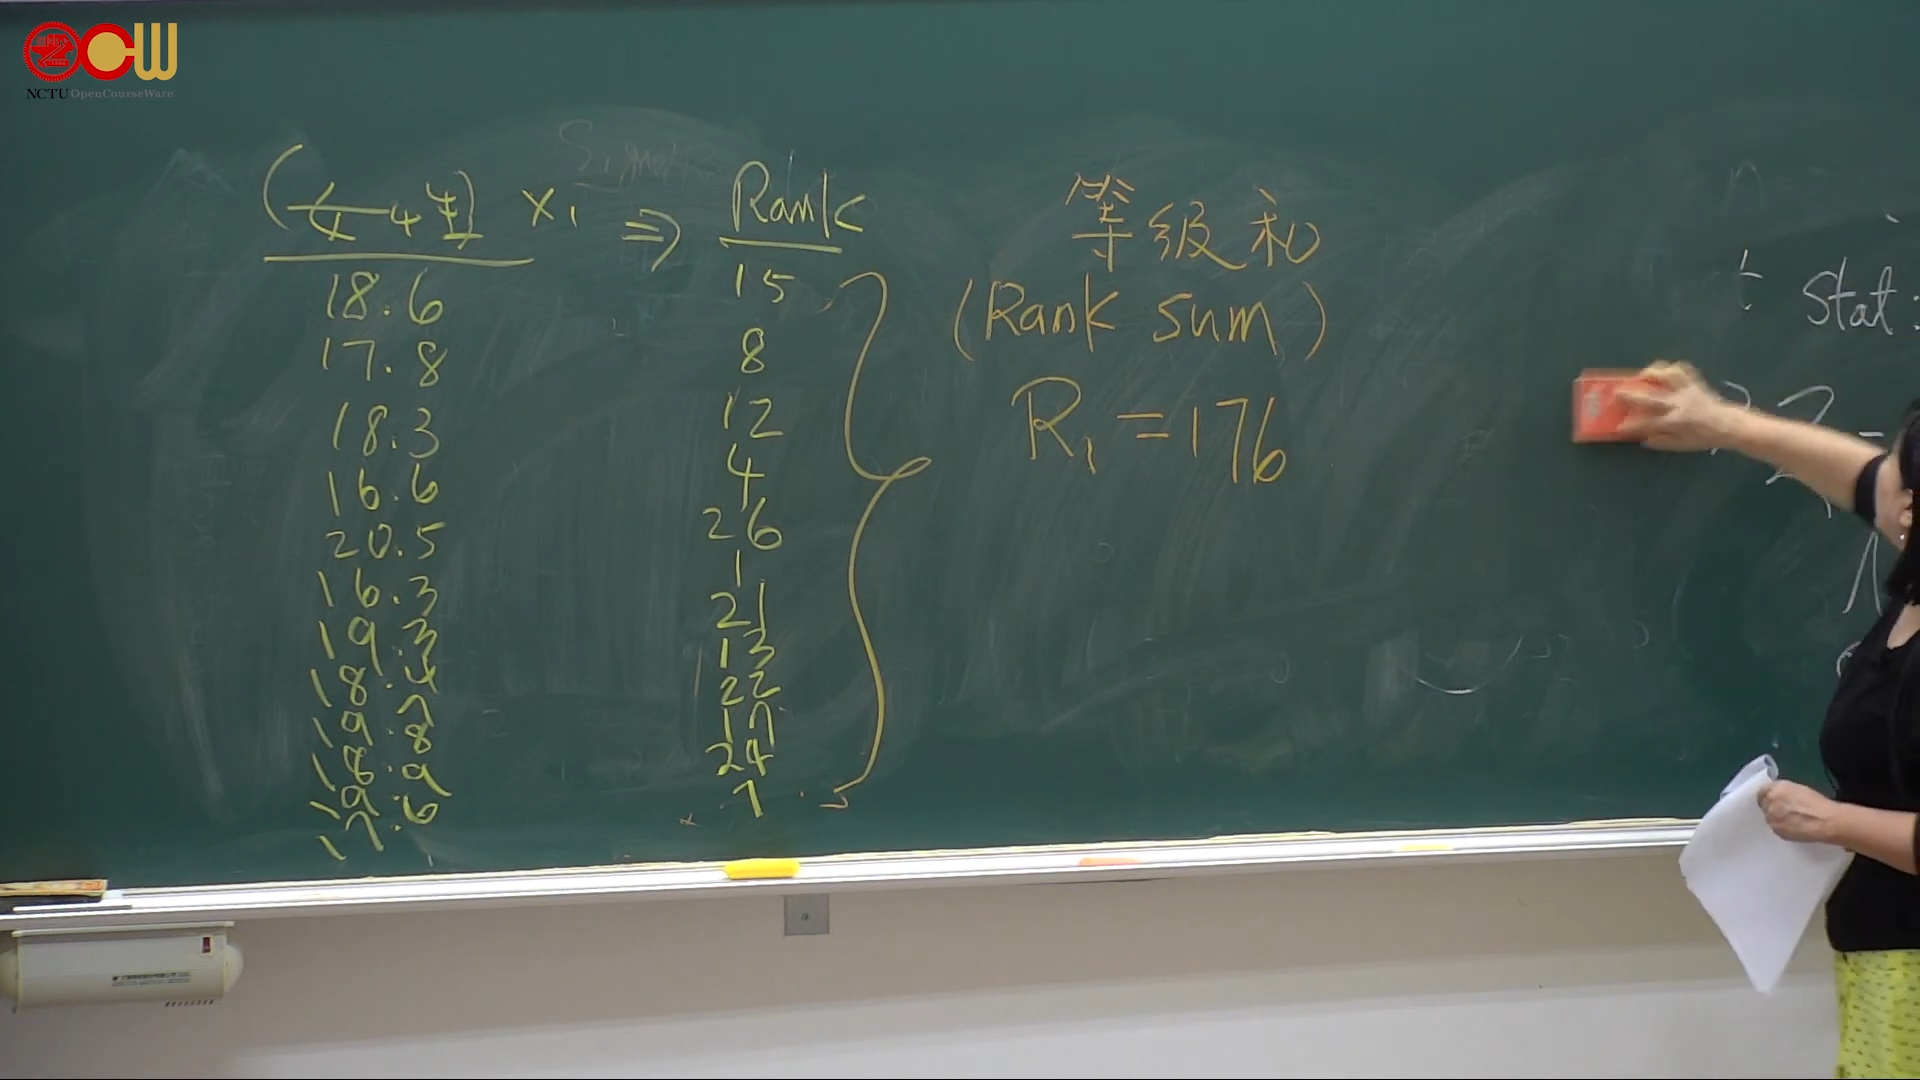 NCTU OpenCourseWare
X₁ ⇒ Rank
18.6 15
17.8 8
18.3 12
16.6 4
20.5 26
16.3 1
19.3 21
18.4 13
19.7 22
18.8 17
19.9 24
17.6 7
等级和
(Rank sum)
R₁ = 176
t Stat: